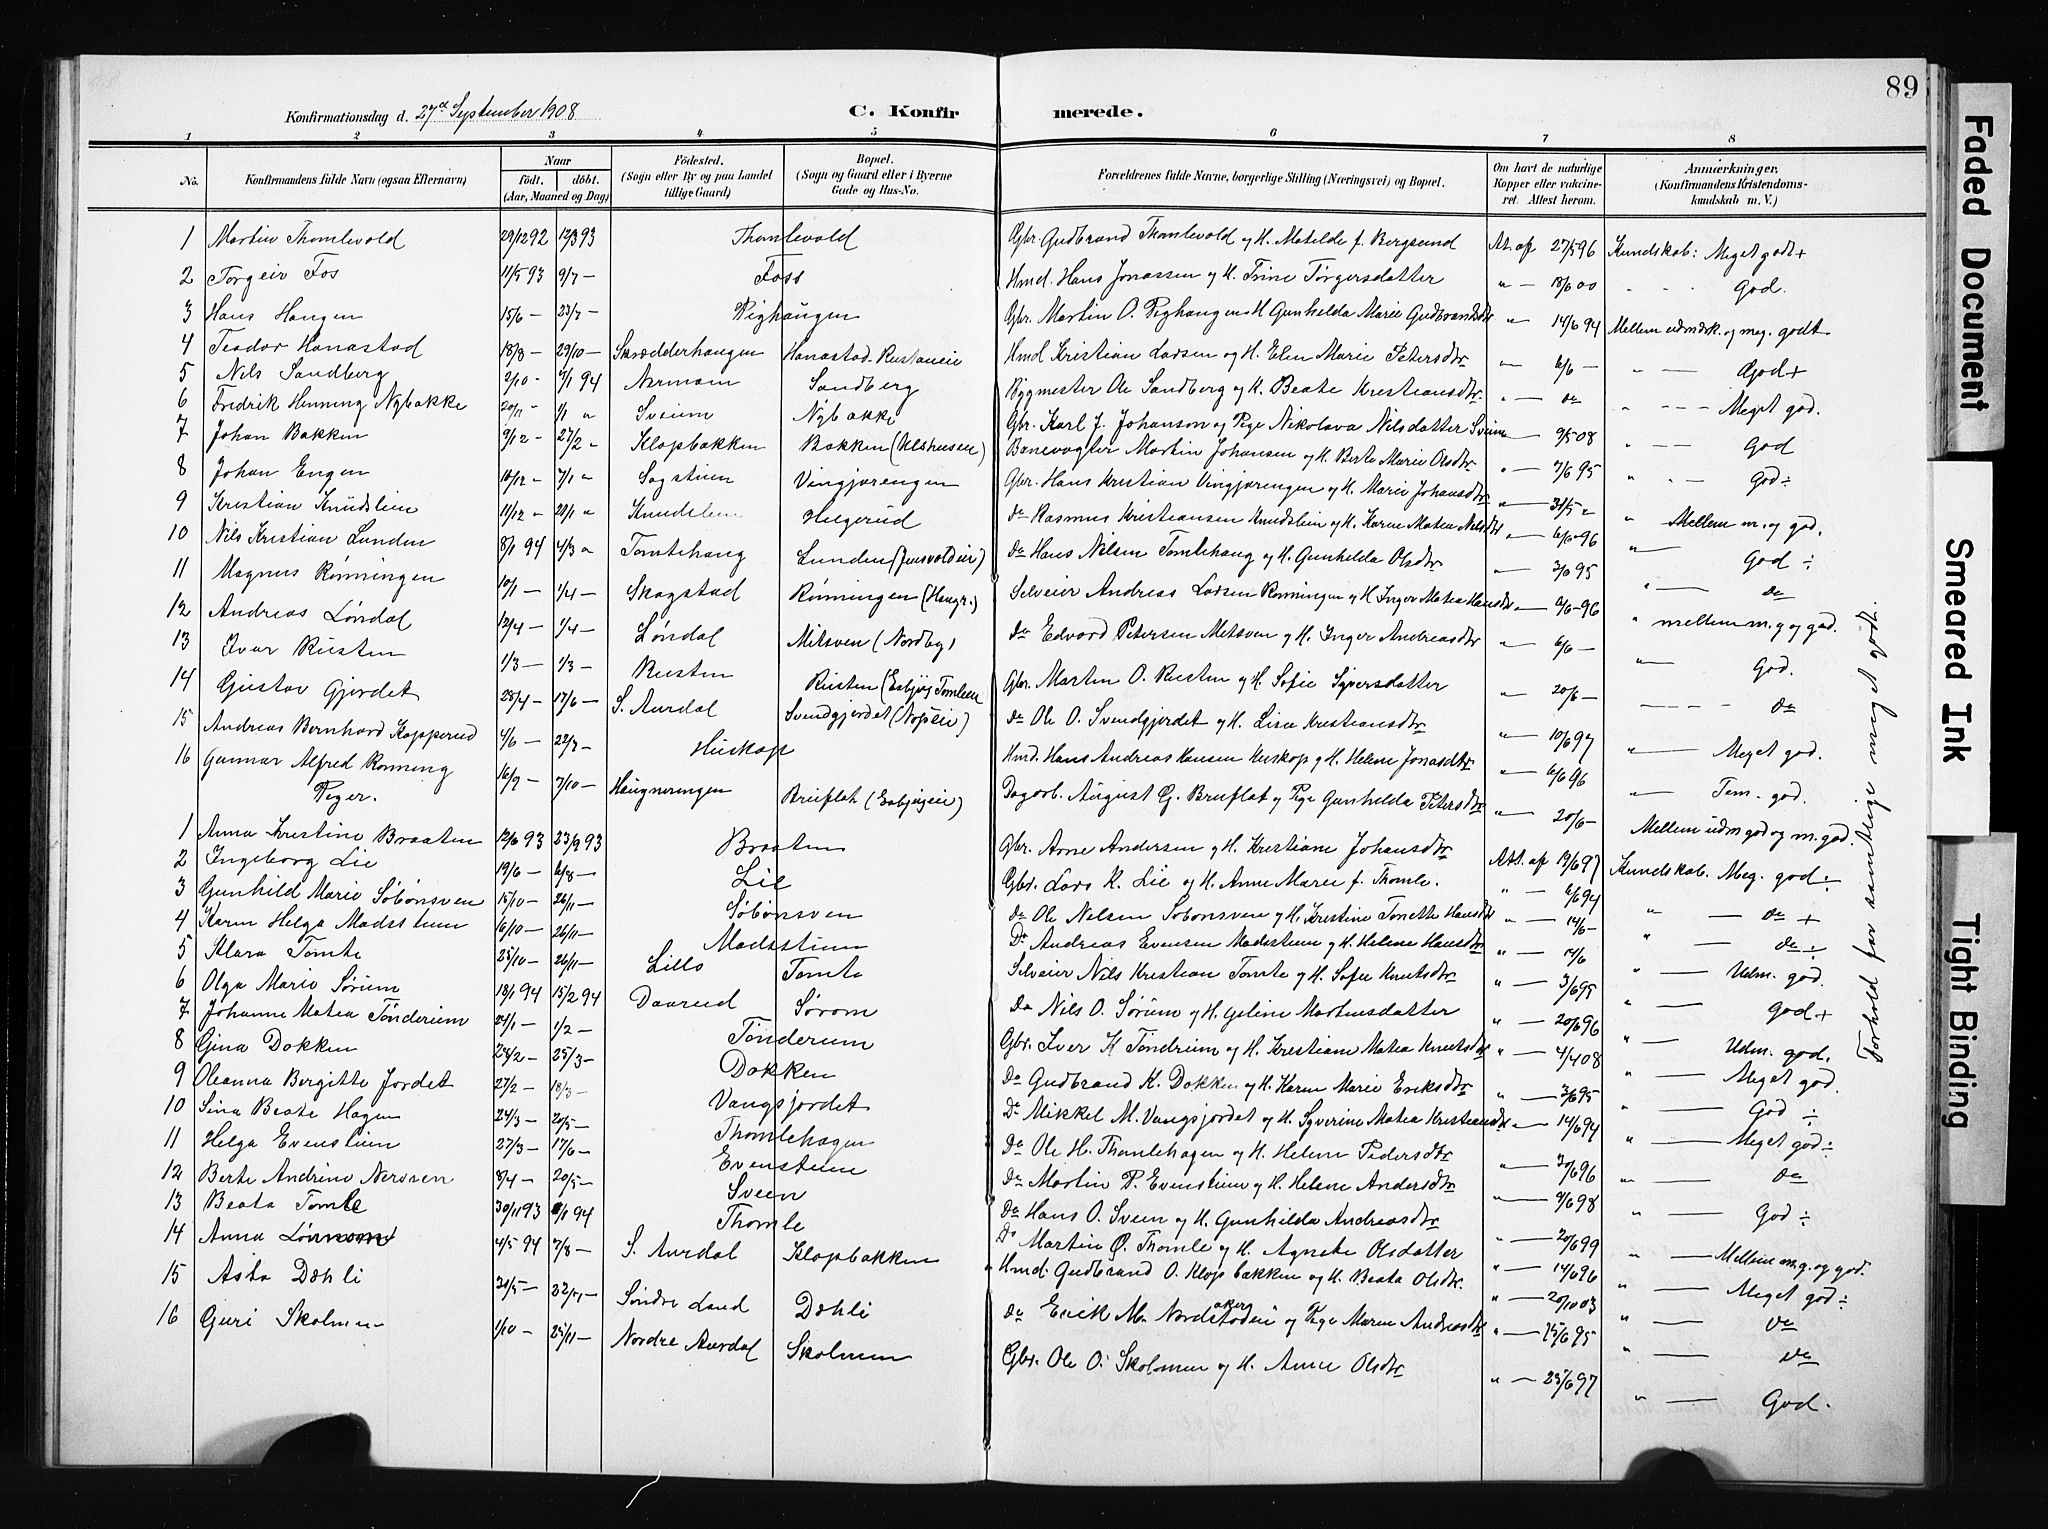 89
Konfirmationsdag d. 27de September 1908
C. Konfirmerede.
1 2 3 4 5 6 7 8
No. Konfirmandens fulde Navn (ogsaa Efternavn) Naar født. døbt. (Aar, Maaned og Dag) Fødested. (Sogn eller By og paa Landet tillige Gaard) Bopæl. (Sogn og Gaard eller i Byerne Gade og Hus-No. Forældrenes fulde Navne, borgerlige Stilling (Næringsvei) og Bopæl. Om havt de naturlige Kopper eller vakcineret. Attest herom. Anmærkninger. (Konfirmandens Kristendomskundskab m. V.)
1 Martin Thomlevold 29/12 92 12/3 93 Thomlevold Gbr. Gudbrand Thomlevold og H. Matilde f. Bergsund At. af 27/5 96 Kundskab: Meget godt +
2 Torgeir Fos 11/5 93 9/7 — Foss Hmd. Hans Jonassen og H. Trine Torgersdatter " — 18/6 00 God.
3 Hans Haugen 15/6 — 23/7 — Pighaugen Gbr. Martin O. Pighaugen H. Gunhilda Marie Gudbrandsdtr " 14/6 94 Mellem udmdsk. og meg. godt
4 Teodor Hanastad 18/8 — 29/10 — Skrædderhaugen Hanastad-Rustaneie Hmd Kristian Larsen og H. Elen Marie Petersdtr " — 6/6 — God +
5 Nils Sandberg 2/10 - 7/1 94 Nermoen Sandberg Bygmester Ole Sandberg og H. Beate Kristiansdtr " — do " — Meget god.
6 Fredrik Henning Nybakke 20/11 - 1/1 " Sveium Nybakke Gbr. Karl J. Johanson og Pige Nikolava Nilsdatter Sveium — 9/5 08 " — God
7 Johan Bakken 9/12 - 27/2 " Klopbakken Bakken (Ulshusen) Banevogter Martin Johansen og H. Berte Marie Olsdtr " — 7/6 95 " — God ÷
8 Johan Engen 10/12 - 7/1 " Sagstuen Vingjærengen Gbr. Hans Kristian Vingjærengen og H. Marie Johansdtr " — 31/5 " " Mellem m. og god.
9 Kristian Knudslien 11/12 " 28/1 " Knudslien Helgerud do Rasmus Kristiansen Knudslein og H. Karne Matea Nilsdtr " — 6/6 96 " God ÷
10 Nils Kristian Lunden 8/1 94 4/3 " Tomtehaug Lunden (Juvvoldeie) do Hans Nilsen Tomtehaug og H. Gunhilda Olsdtr " — 3/6 95 " — do
11 Magnus Rønningen 10/1 — 1/4 — Skogstad Rønningen (Haugr.) Selveier Andreas Larsen Rønningen og H Inger Matea Hansdtr " — 6/6 - 96 " mellem m.g og god.
12 Andreas Løndal 12/4 — 1/4 — Løndal Mitsven (Nordby) do Edvard Petersen Metsven og H. Inger Andreasdtr " — 6/6 — " — God.
13 Ivar Rusten 1/3 — 1/3 — Rusten Rusten (Esbjug Tomleeie Gbr. Martin O. Rusten og H. Sofie Syversdatter " — 20/6 — - - - - do
14 Gustav Gjerdet 28/4 — 17/6 — S. Aurdal Svendgjerdet (Nøpseie) do Ole O. Svendgjerdet og H. Lisa Kristiansdtr " — 10/6 97 " — Meget god.
15 Andreas Bernhard Kopperud 4/6 — 22/7 — Huskop Hmd. Hans Andreas Hansen Huskop og H. Helene Jonasdtr " — 6/6 96 " — Tem. god.
16 Gunnar Alfred Rønning 16/9 — 7/10 — Haugnerengen Bruflat (Esbjugeie) Dagarb. August G. Bruflat og Pige Gunhilda Petersdtr " — 20/6 — Mellem udm god og m. god.
Piger.
1 Anna Kristine Braaten 12/6 93 23/9 93 Braaten Gbr. Arne Andersen og H. Kristiane Johansdtr Att. af 19/6 97 Kundskab. Meg. god ÷
2 Ingeborg Lie 19/6 — 6/8 — Lie Gbr. Lars K. Lie og H. Anne Marie f. Thomle. " — 6/6 94 " — do +
3 Gunhild Marie Søbønsven 15/10 — 26/11 — Søbønsven do Ole Nelsen Søbønsven og H. Kristine Tonette Hansdtr " — 14/6 — " — do ÷
4 Karen Helga Madsstuen 16/10 — 26/11 — Madsstuen Do Andreas Evensen Madsstuen og H. Helene Hansdtr " — 14/6 " — Udm. god.
5 Klara Tomte 25/10 — 26/11 — Lillo Tomte Selveier Nils Kristian Tomte og H. Sofie Knutsdtr " — 3/6 95 " — God +
6 Olga Marie Sørum 18/1 94 15/2 94 Daarud Sørom Do Nils O. Sørum og H. Geline Martinusdatter " — 20/6 96 " — Udm. god.
7 Johanne Matea Tønderum 24/1 — 1/2 — Tønderum Gbr. Iver K Tøndrum og H. Kristiane Matea Knutsdtr " — 4/4 08 " — Meget god.
8 Gina Dokken 24/2 — 25/3 — Dokken Do Gudbrand K. Dokken og H. Karen Marie Eriksdtr " — 3/6 95 " — God ÷
9 Oleanna Bergitte Jordet 27/2 — 18/3 — Vangsjordet Do Mikkel M. Vangsjordet og H. Syverine Matea Kristiansdtr " — 14/6 94 " — Meget god ÷
10 Sina Beate Hagen 24/3 — 20/5 — Thomlehagen Do Ole H. Thomlehagen og H. Helene Pedersdtr " — 30/6 96 " — do
11 Helga Evenstuen 27/3 — 17/6 — Evenstuen Do Martin P. Evenstuen og H. Helene Andersdtr " — 9/6 98 " — God ÷
12 Berte Andrine Nersven 8/4 — 20/5 — Sveen Do Hans O. Sveen og H. Gunhilda Andreasdtr " — 20/6 99 " — Mellem m.g. og god.
13 Beata Tomle 30/11 93 1/1 94 Thomle Do Martin O. Thomle og H. Agnete Olsdatter " — 14/6 96 " — Meget god ÷
14 Anna 4/5 94 7/8 — S. Aurdal Klopbakken Hmd. Gudbrand O. Klopbakken og H. Beata Olsdtr. " — 20/10 03 " — do
15 Asta Dæhli 31/5 — 22/7 — Søndre Land Dæhli do Erick M. Nordstadeie og Pige Maren Andreasdtr " — 15/6 95 " — do
16 Guri Skolmen 1/10 — 25/11 — Nordre Aurdal Skolmen Gbr. Ole O. Skolmen og H. Anne Olsdtr " — 25/6 97 " — God.
Forhold for samtlige meget godt.
Faded Document
Smeared Ink
Tight Binding